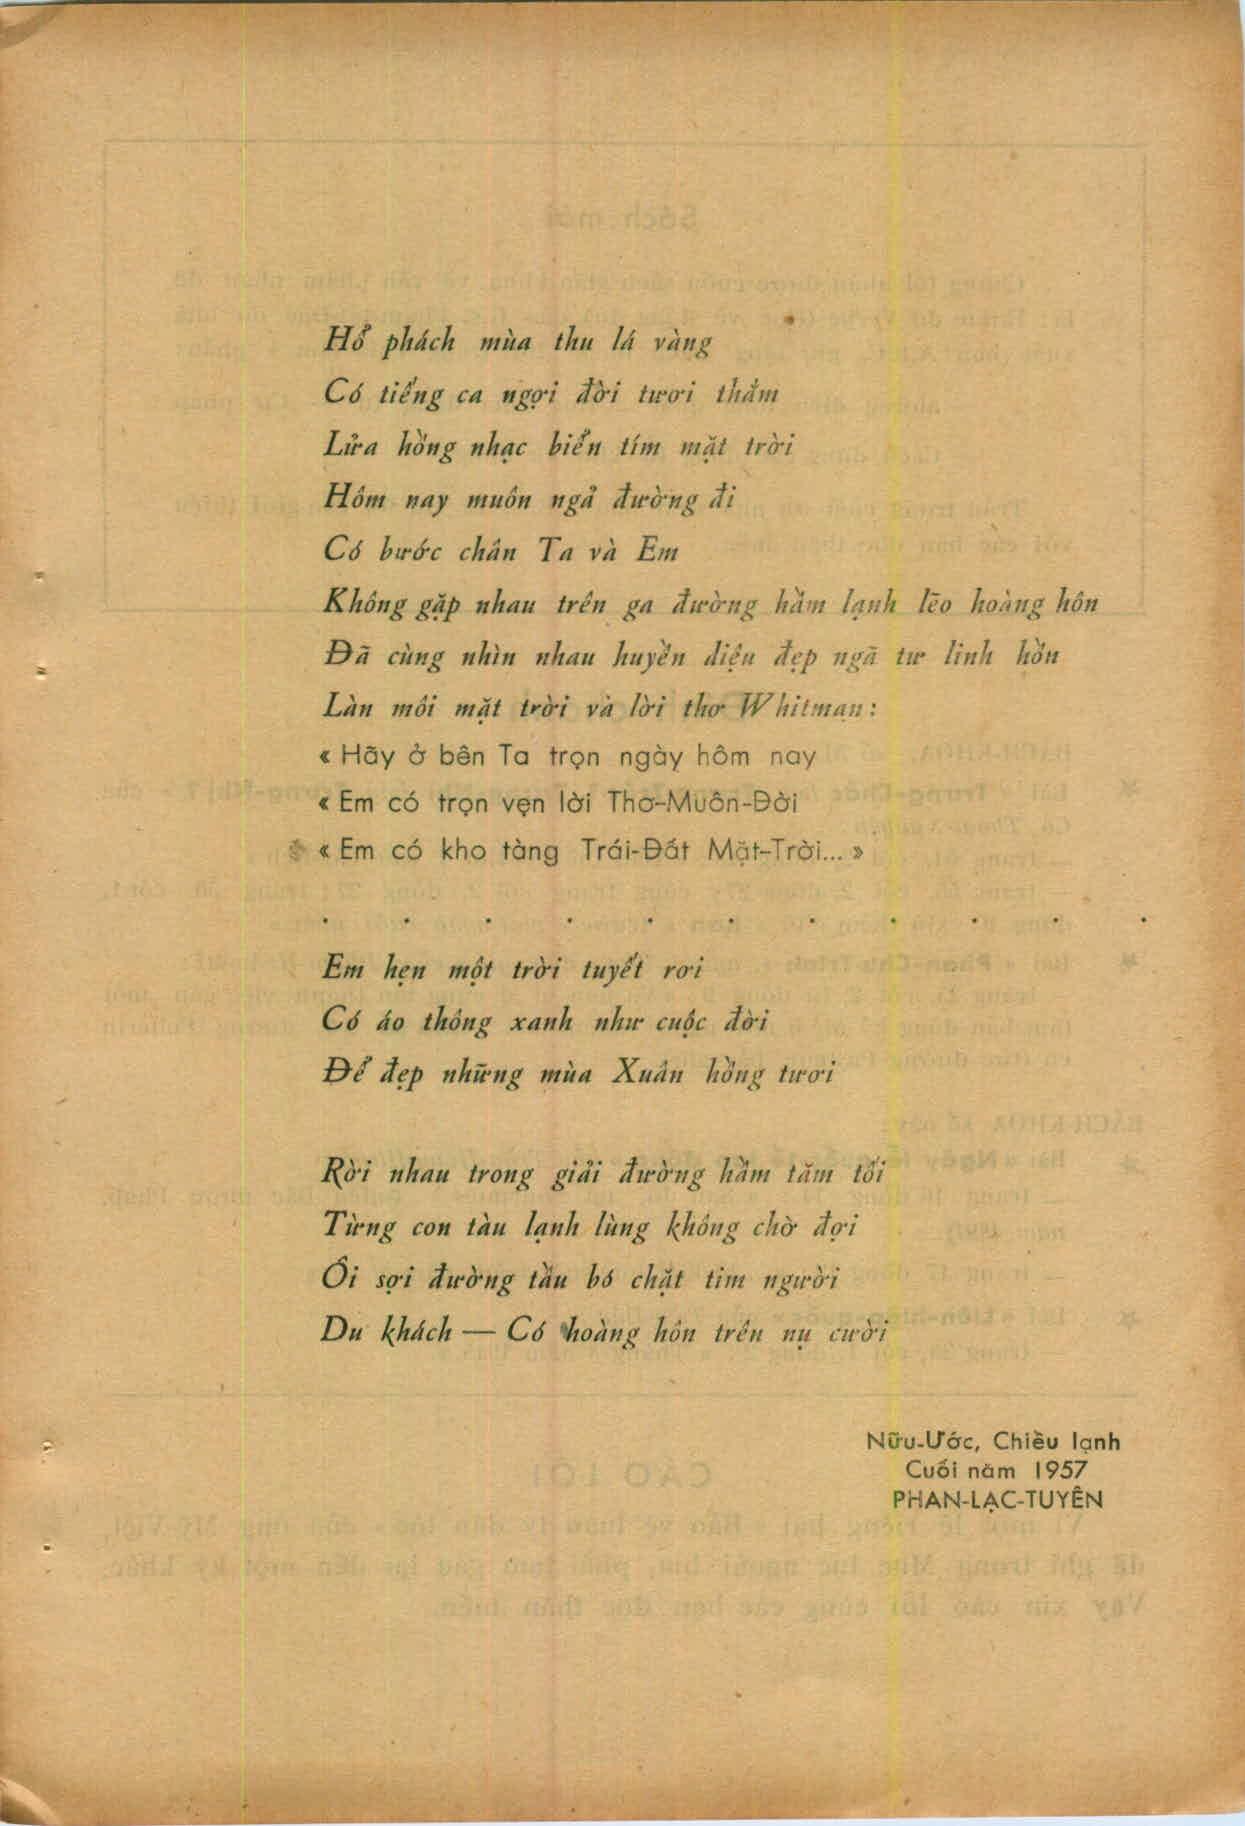 Hổ phách mùa thu lá vàng
Có tiếng ca ngợi đời tươi thắm
Lửa hồng nhạc biển tím mặt trời
Hôm nay muôn ngả đường đi
Có bước chân Ta và Em
Không gặp nhau trên ga đường hầm lạnh lẽo hoàng hôn
Đã cùng nhìn nhau huyền diệu đẹp ngã tư linh hồn
Làn môi mặt trời và lời thơ Whitman :
« Hãy ở bên Ta trọn ngày hôm nay
« Em có trọn vẹn lời Thơ-Muôn-Đời
« Em có kho tàng Trái-Đất Mặt-Trời... »
. . . . . . . . . . .
Em hẹn một trời tuyết rơi
Có áo thông xanh như cuộc đời
Để đẹp những mùa Xuân hồng tươi
Rời nhau trong giải đường hầm tăm tối
Từng con tàu lạnh lùng không chờ đợi
Ôi sợi đường tầu bó chặt tim người
Du khách — Có hoàng hôn trên nụ cười
Nữu-Ước, Chiều lạnh
Cuối năm 1957
PHAN-LẠC-TUYÊN